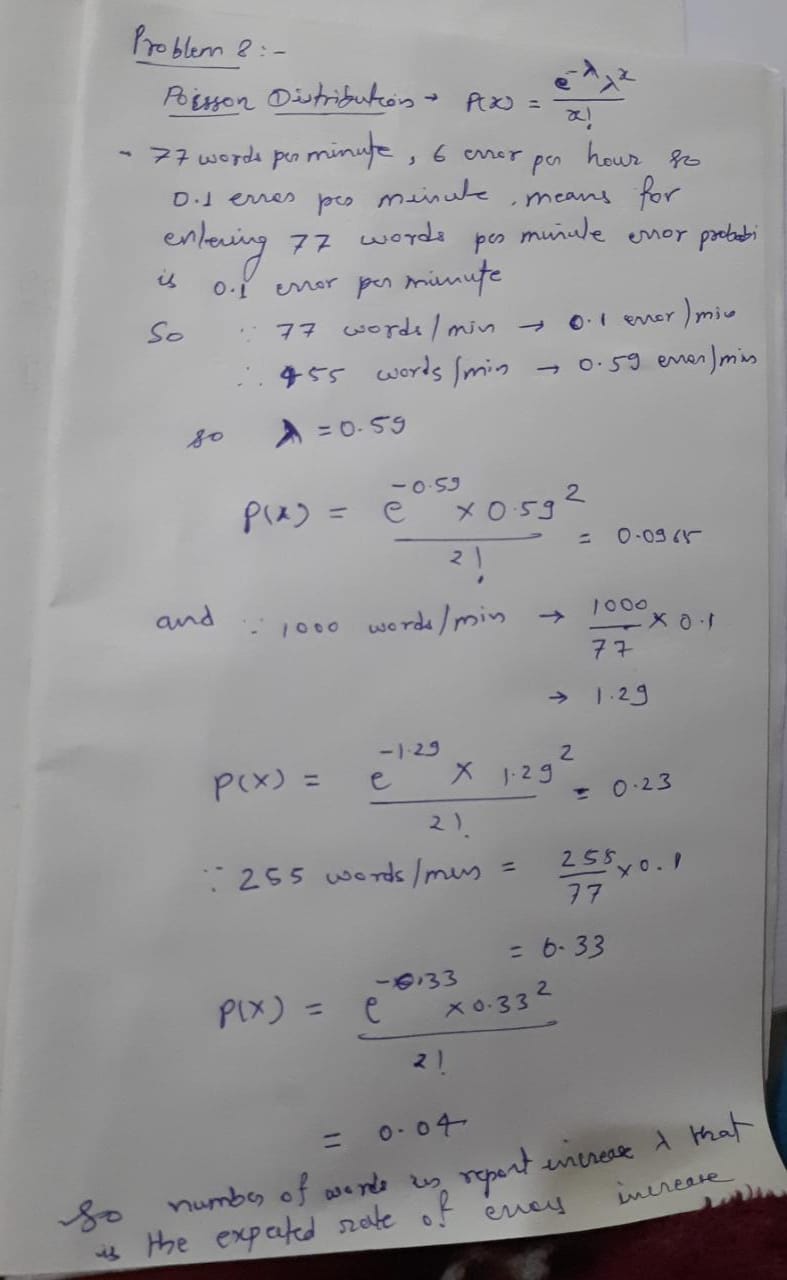 Problem 8 :-
Poisson Distribution → P(x) = e^-λ λ^x / x!
- 77 words per minute, 6 error per hour so
0.1 erros per minute, means for
entering 77 words per minute error probabi
is 0.1 error per minute
So ∵ 77 words / min → 0.1 error / min
∴ 455 words / min → 0.59 error / min
so λ = 0.59
P(x) = e^-0.59 × 0.59^2 / 2! = 0.0965
and ∵ 1000 words/min → 1000/77 × 0.1
→ 1.29
P(X) = e^-1.29 × 1.29^2 / 2! = 0.23
∵ 255 words / min = 255/77 × 0.1
= 0.33
P(X) = e^-0.33 × 0.33^2 / 2!
= 0.04
So number of words in report increase λ that
is the expected rate of errors increase